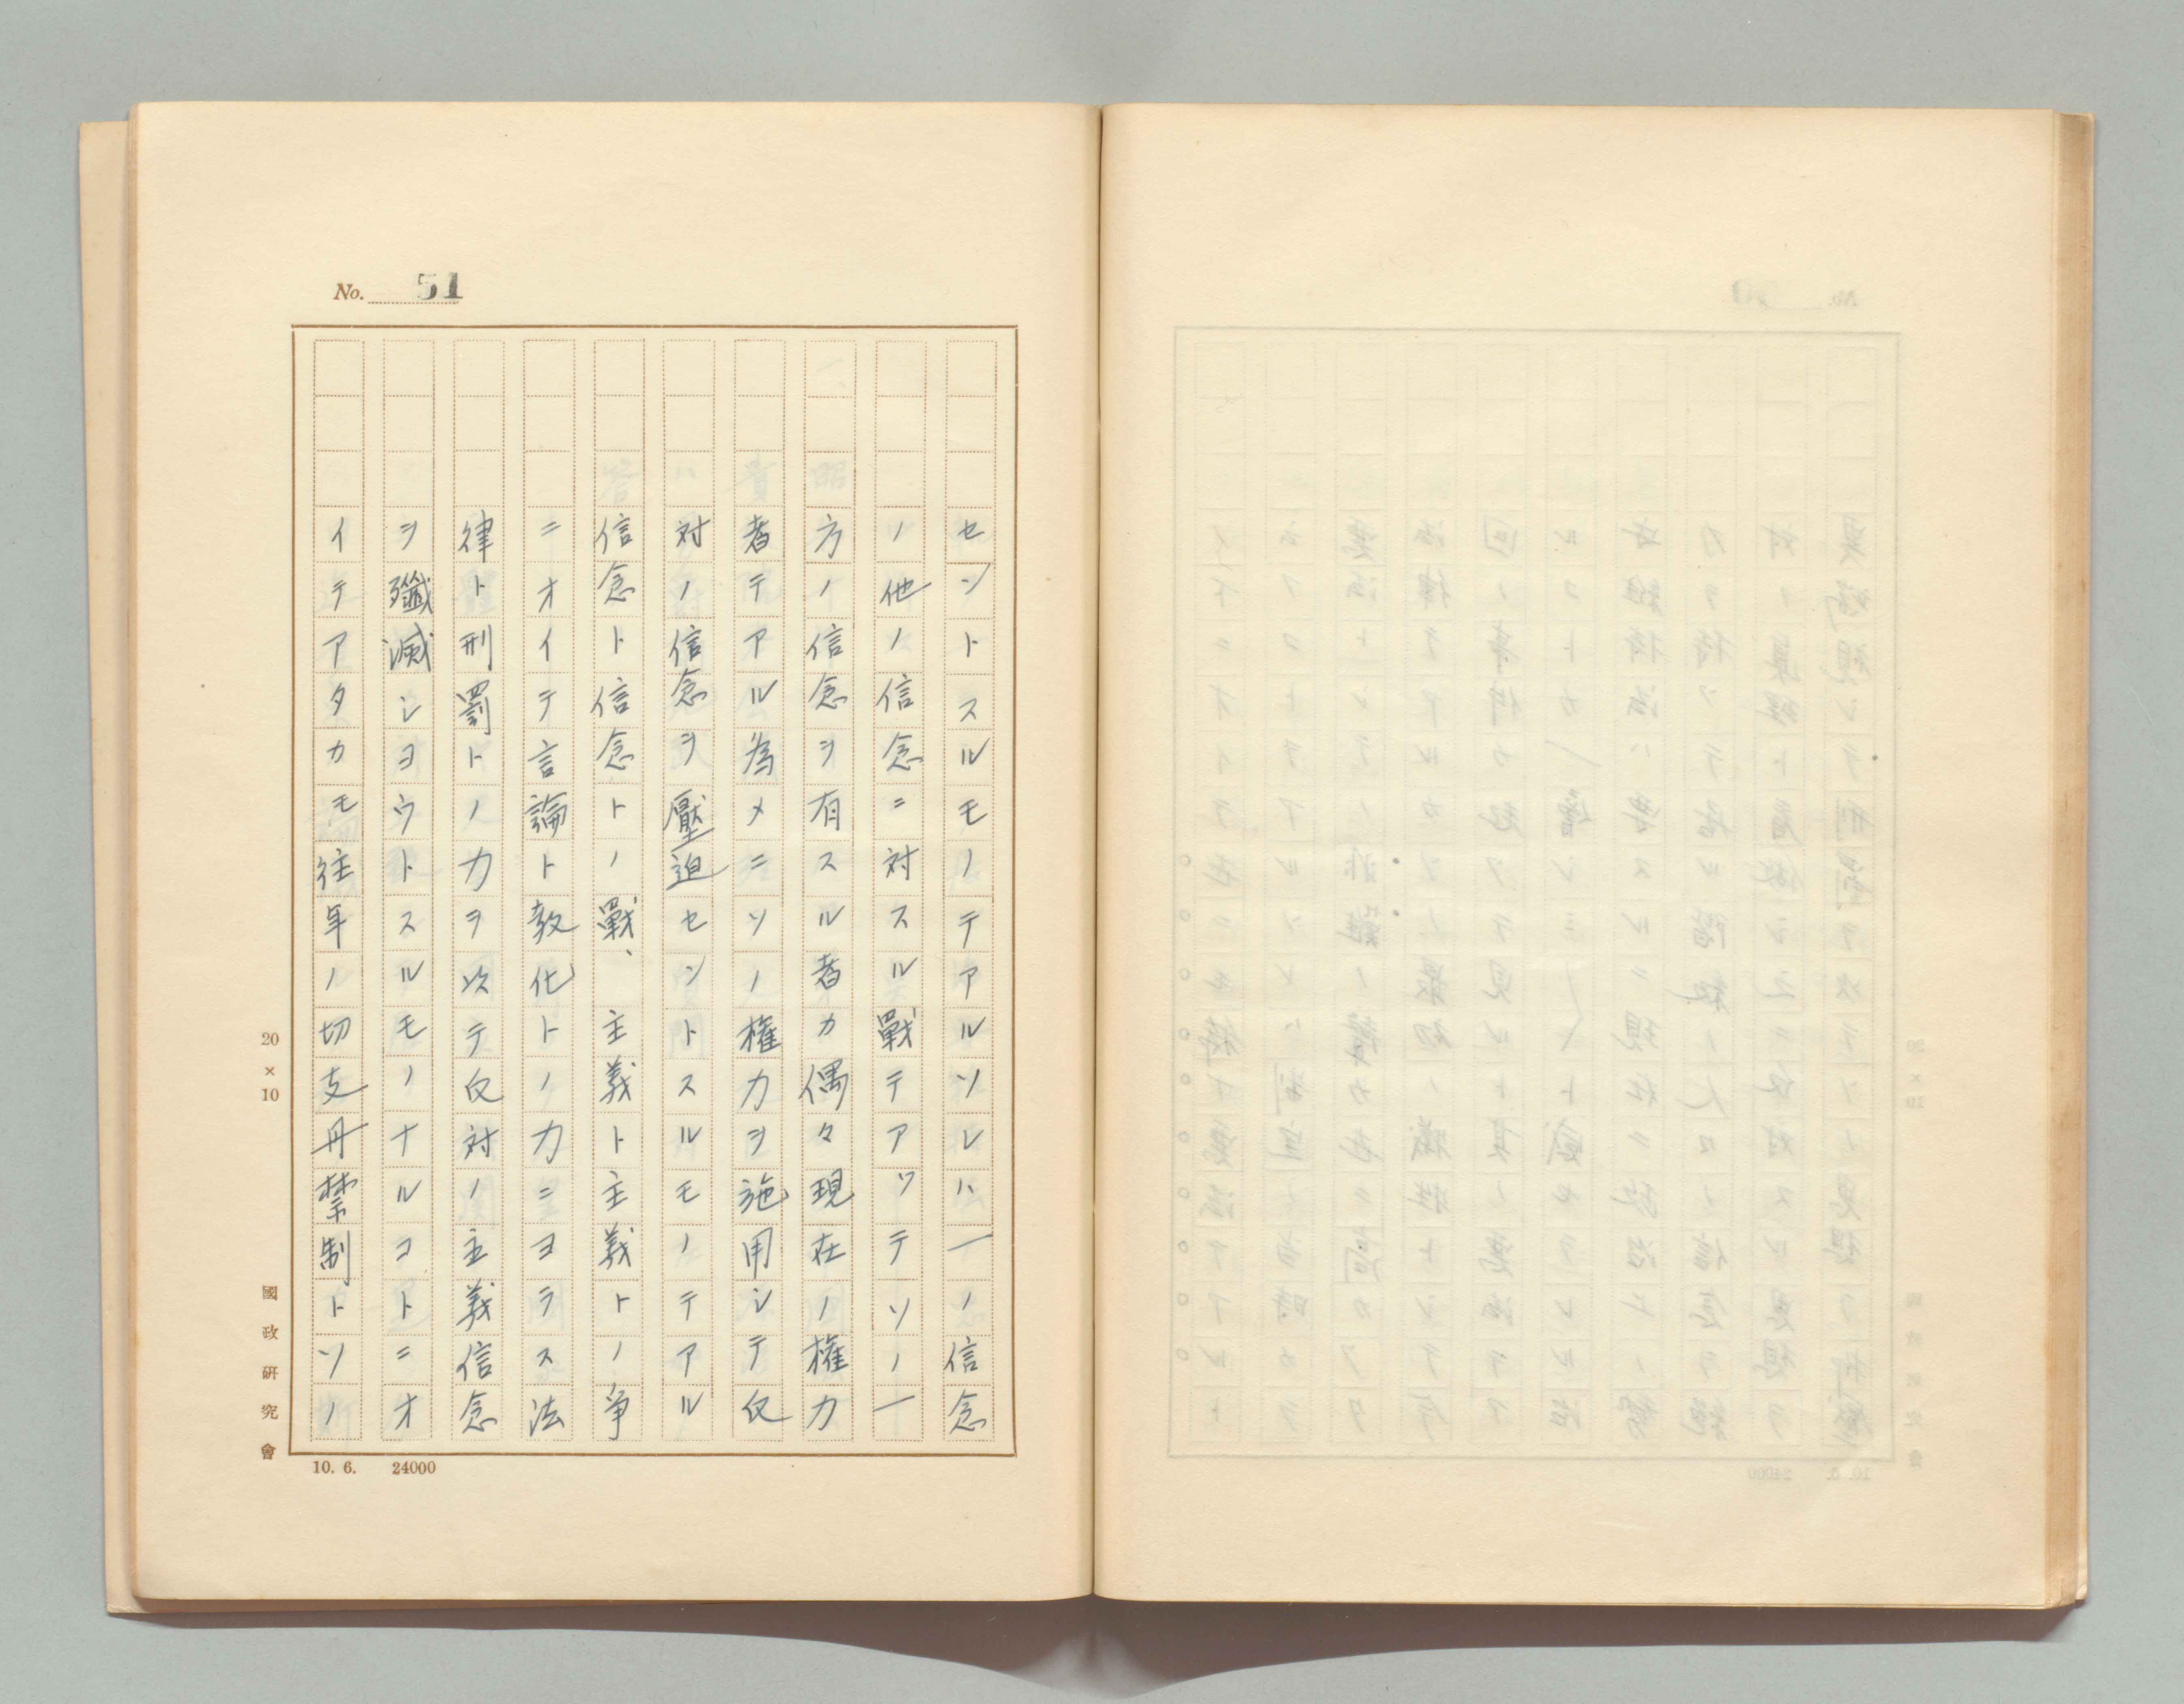 No. 51
セントスルモノテアルソレハ一ノ信念
ノ他ノ信念ニ対スル戰テアツテソノ一
方ノ信念ヲ有スル者カ偶々現在ノ権力
者テアル為メニソノ権力ヲ施用シテ反
対ノ信念ヲ壓迫セントスルモノテアル
信念ト信念トノ戰、主義ト主義トノ争
ニオイテ言論ト教化トノ力ニヨラス法
律ト刑罰トノ力ヲ以テ反対ノ主義信念
ヲ殲滅シヨウトスルモノナルコトニオ
イテアタカモ往年ノ切支丹禁制トソノ
20×10
國政研究會
10. 6. 24000